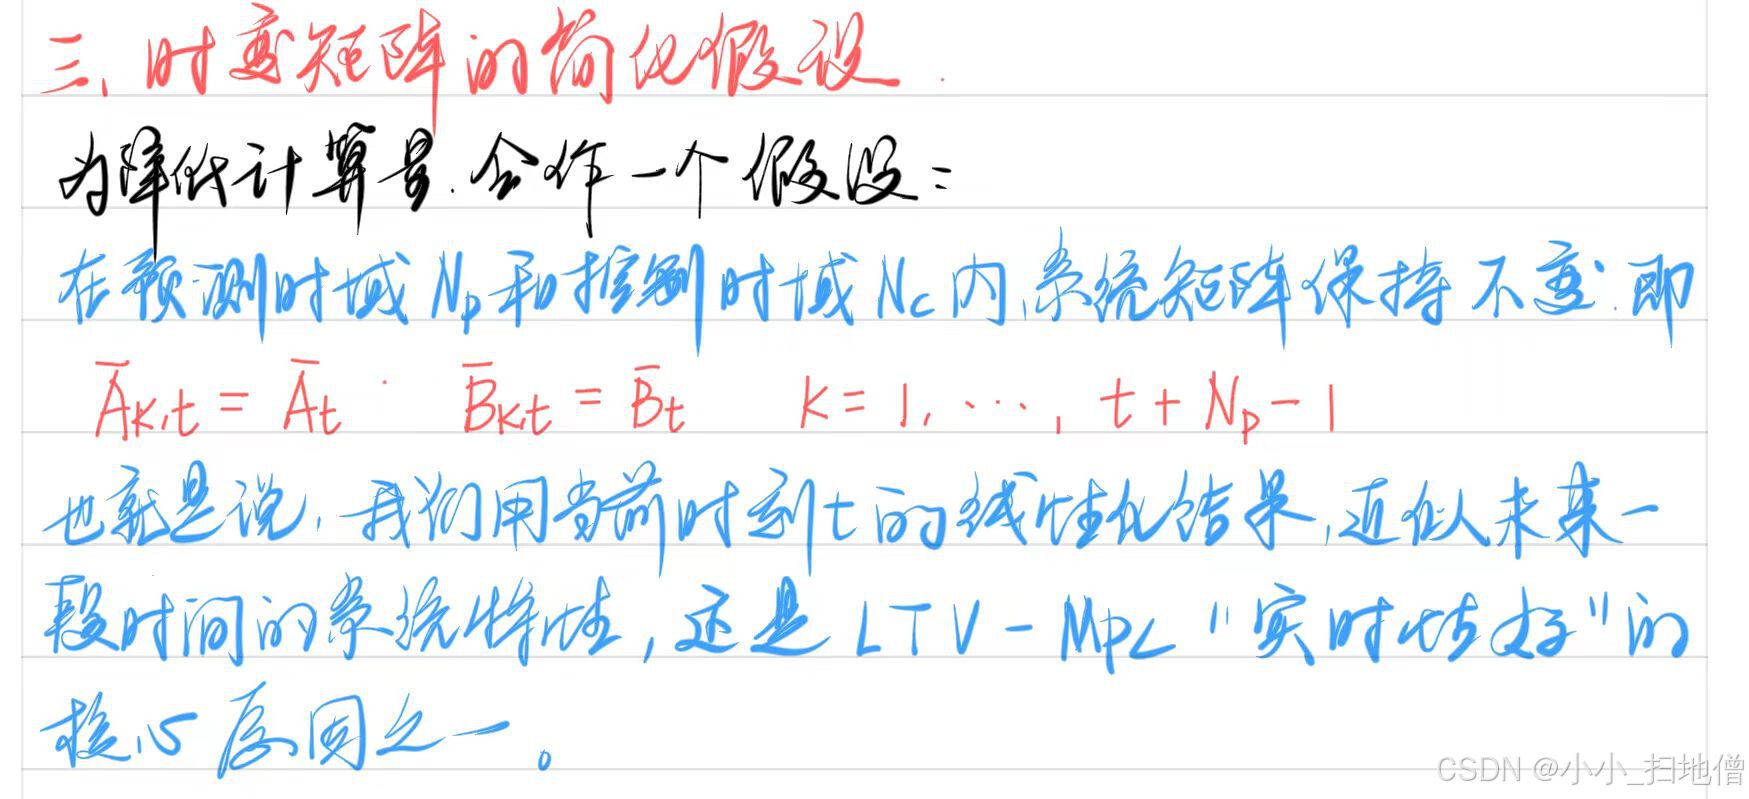 三、时变矩阵的简化假设.
为降低计算量.会作一个假设:
在预测时域Np和控制时域Nc内,系统矩阵保持不变.即
Āk,t = Āt  B̄k,t = B̄t  k = 1, ..., t + Np - 1
也就是说,我们用当前时刻t的线性化结果,近似未来一
段时间的系统特性,这是LTV-MPC "实时性好"的
核心原因之一。
CSDN @小小_扫地僧